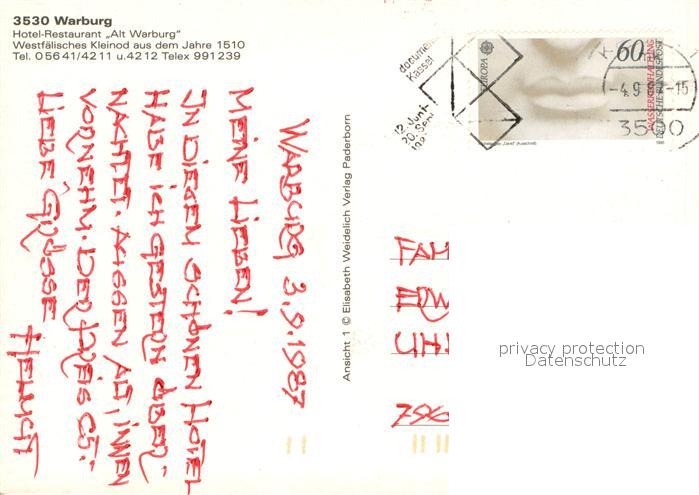 3530 Warburg
Hotel-Restaurant „Alt Warburg"
Westfälisches Kleinod aus dem Jahre 1510
Tel. 05641/4211 u. 4212 Telex 991239
WARBURG 3.9.1987
MEINE LIEBEN!
IN DIESEM SCHÖNEN HOTEL
HABE ICH GESTERN ÜBER-
NACHTET. AUSSEN ALT, INNEN
VORNEHM. DER PREIS
LIEBE GRÜSSE
HELMUT
Ansicht 1 © Elisabeth Weidelich Verlag Paderborn
documen
Kassel
12. Juni-
20. Sept
198
EUROPA
60
WASSERREINHALTUNG
DEUTSCHE BUNDESPOST
-4.9.8 -15
3500
FAM
EDW
privacy protection
Datenschutz